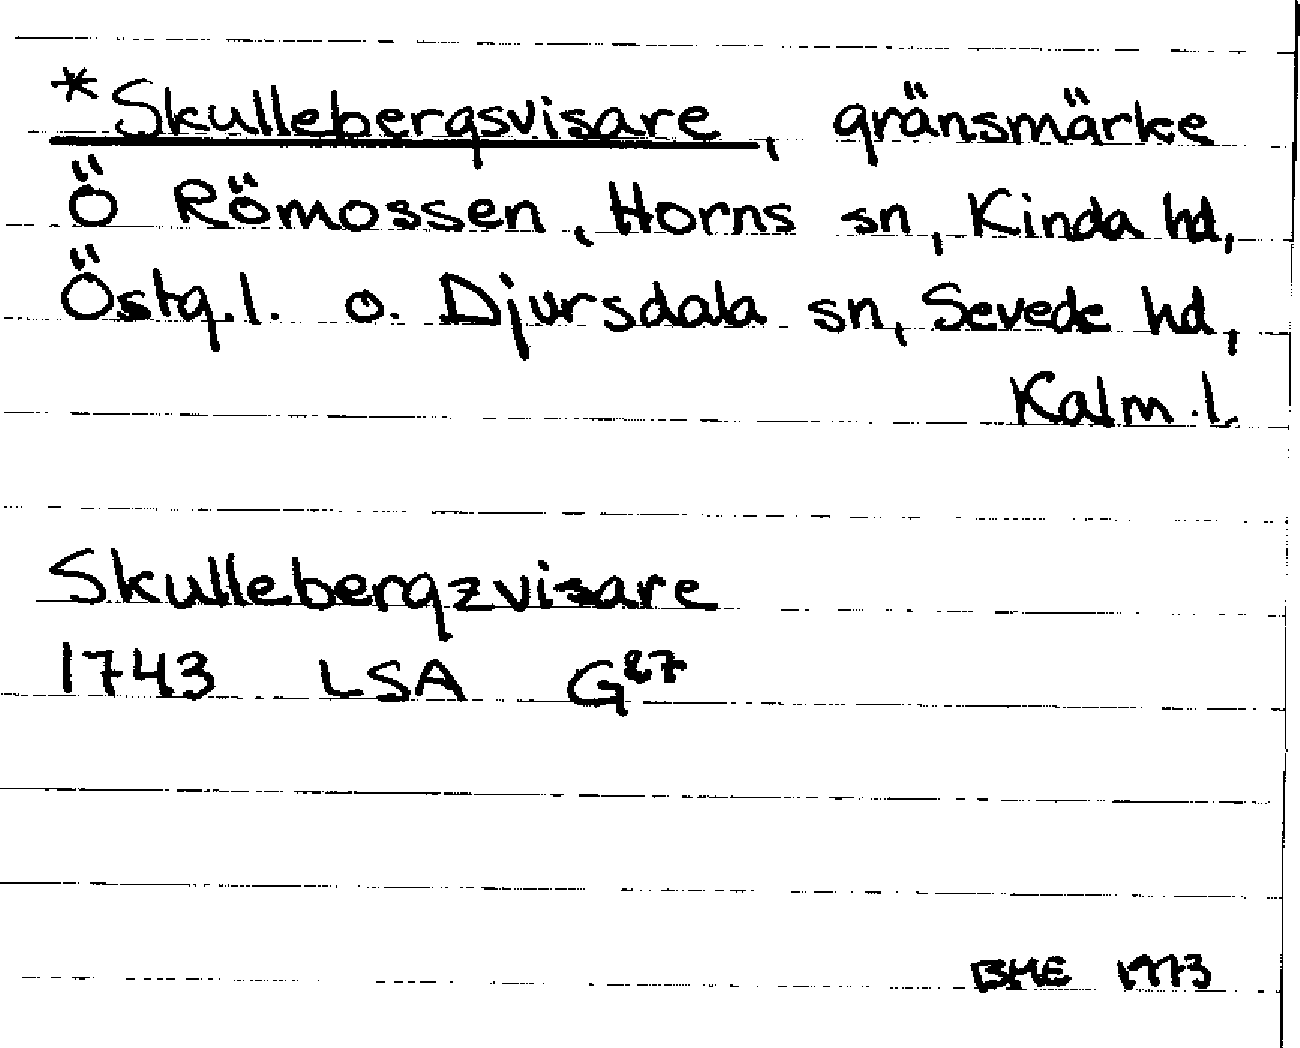 *Skullebergsvisare, gränsmärke
Ö Römossen, Horns sn, Kinda hd,
Östg.l. o. Djursdala sn, Sevede hd,
Kalm.l.
Skullebergzvisare
1743 LSA G87
BME 1973